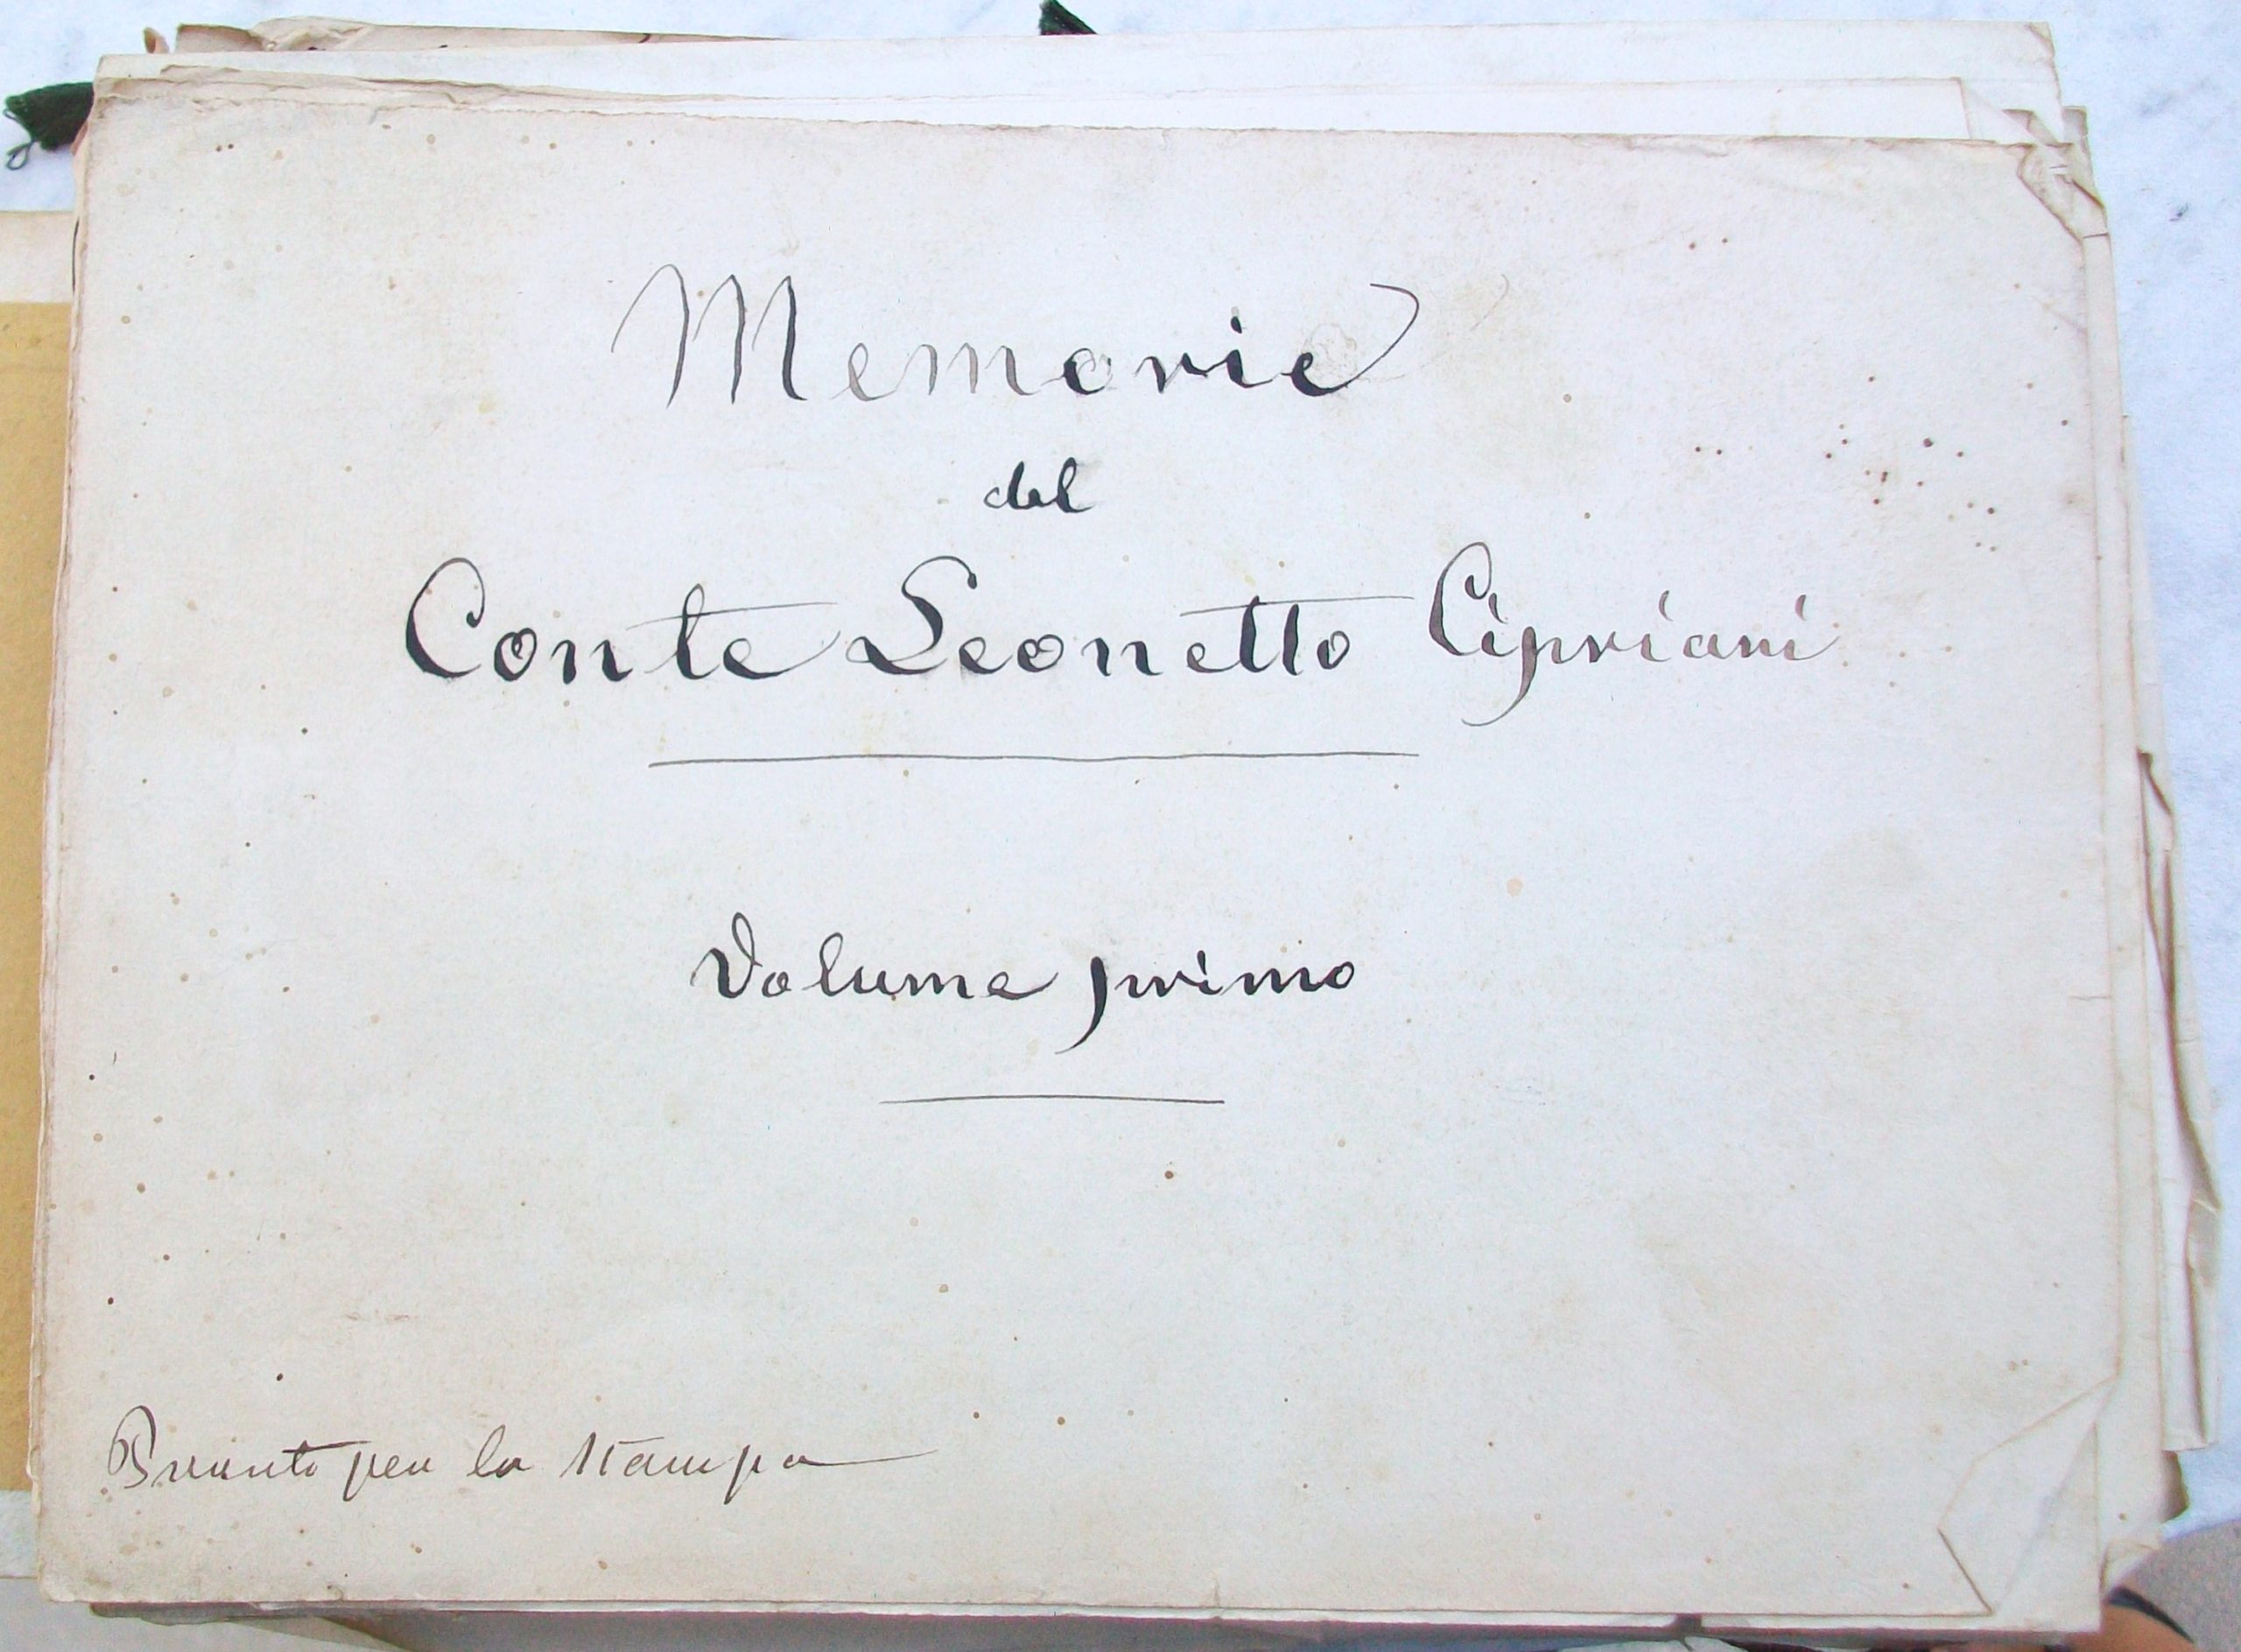 Memorie
del
Conte Leonetto Cipriani
Volume primo
Pronto per la stampa